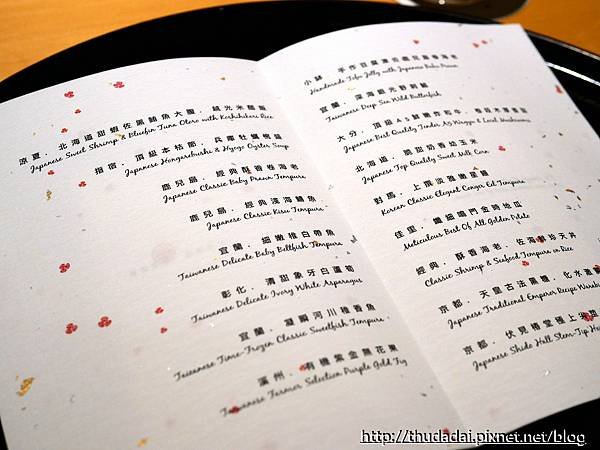 涼夏．北海道甜蝦佐黑鮪魚大腹．越光米醋飯
Japanese Sweet Shrimp & Bluefin Tuna Otoro with Koshihikari Rice
指宿．頂級本枯節．兵庫牡蠣椀盛
Japanese Hongarebushi & Hyogo Oyster Soup
鹿兒島．經典酥香卷海老
Japanese Classic Baby Prawn Tempura
鹿兒島．經典淺海鱚魚
Japanese Classic Kisu Tempura
宜蘭．細嫩稚白帶魚
Taiwanese Delicate Baby Beltfish Tempura
彰化．清甜象牙白蘆筍
Taiwanese Delicate Ivory White Asparagus
宜蘭．凝瞬河川稚香魚
Taiwanese Time-Frozen Classic Sweetfish Tempura
溪州．有機紫金無花果
Taiwanese Farmer Selection Purple Gold Fig
小缽．手作豆腐
Handmade Tofu Jelly with Japanese Baby Prawn
宜蘭．深海
Taiwanese Deep Sea Wild Butterfish
大分．頂級A5鮮嫩炸和牛．
Japanese Best Quality Tender A5 Waygu & Local Mushrooms
北海道．脆甜奶香幼玉米
Japanese Top Quality Sweet Milk Corn
對馬．上撰淡雅樂星鰻
Korean Classic Elegant Conger Eel Tempura
佳里．纖細鳴門金時地瓜
Meticulous Best Of All Golden Potato
經典．酥香海老．佐海鮮珍天丼
Classic Shrimp & Seafood Tempura on Rice
京都．天皇古法黑糖．化水蕨
Japanese Traditional Emperor Recipe
京都．伏見椿堂極上米
Japanese Shido Hall Stem-Tip
http://thudadai.pixnet.net/blog